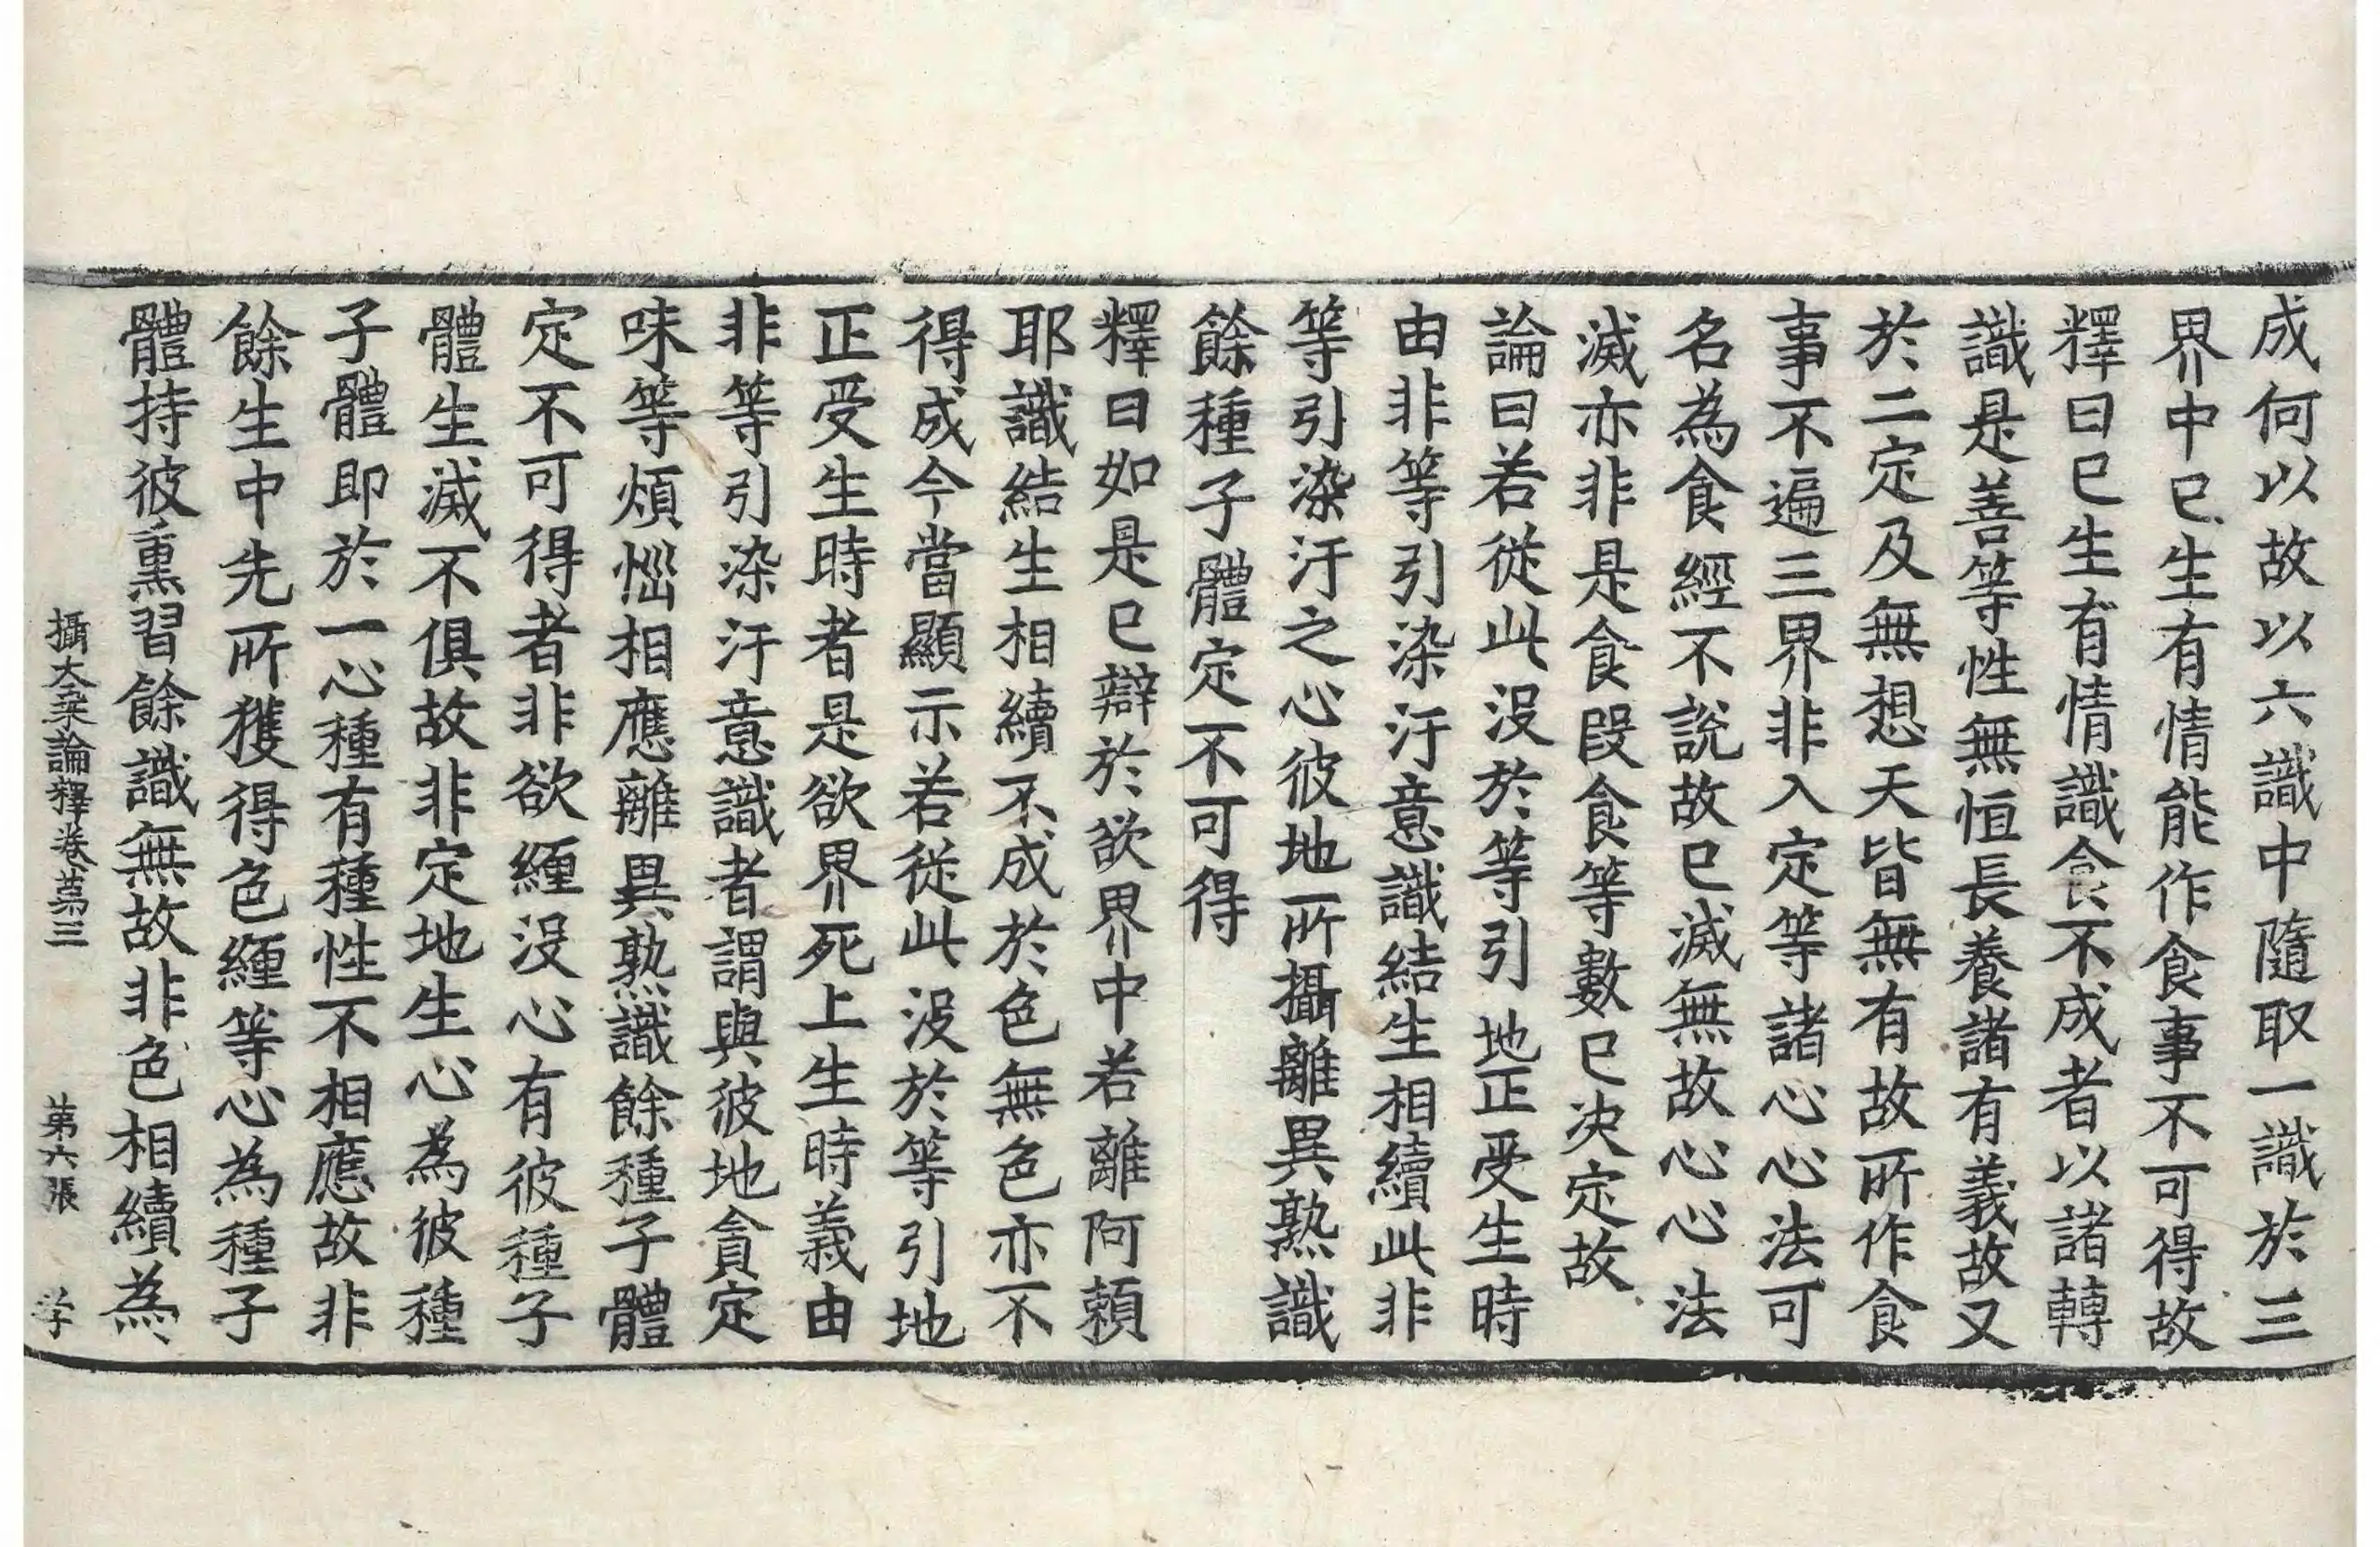 成何以故以六識中隨取一識於三
界中已生有情能作食事不可得故
釋曰已生有情識食不成者以諸轉
識是善等性無恒長養諸有義故又
於二定及無想天皆無有故所作食
事不遍三界非入定等諸心心法可
名為食經不說故已滅無故心心法
滅亦非是食段食等數已決定故
論曰若從此沒於等引地正受生時
由非等引染汙意識結生相續此非
等引染汙之心彼地所攝離異熟識
餘種子體定不可得
釋曰如是已辯於欲界中若離阿賴
耶識結生相續不成於色無色亦不
得成今當顯示若從此沒於等引地
正受生時者是欲界死上生時義由
非等引染汙意識者謂與彼地貪定
味等煩惱相應離異熟識餘種子體
定不可得者非欲纏沒心有彼種子
體生滅不俱故非定地生心為彼種
子體即於一心種有種性不相應故非
餘生中先所獲得色纏等心為種子
體持彼熏習餘識無故非色相續為
攝大乘論釋卷第三 第六張 学